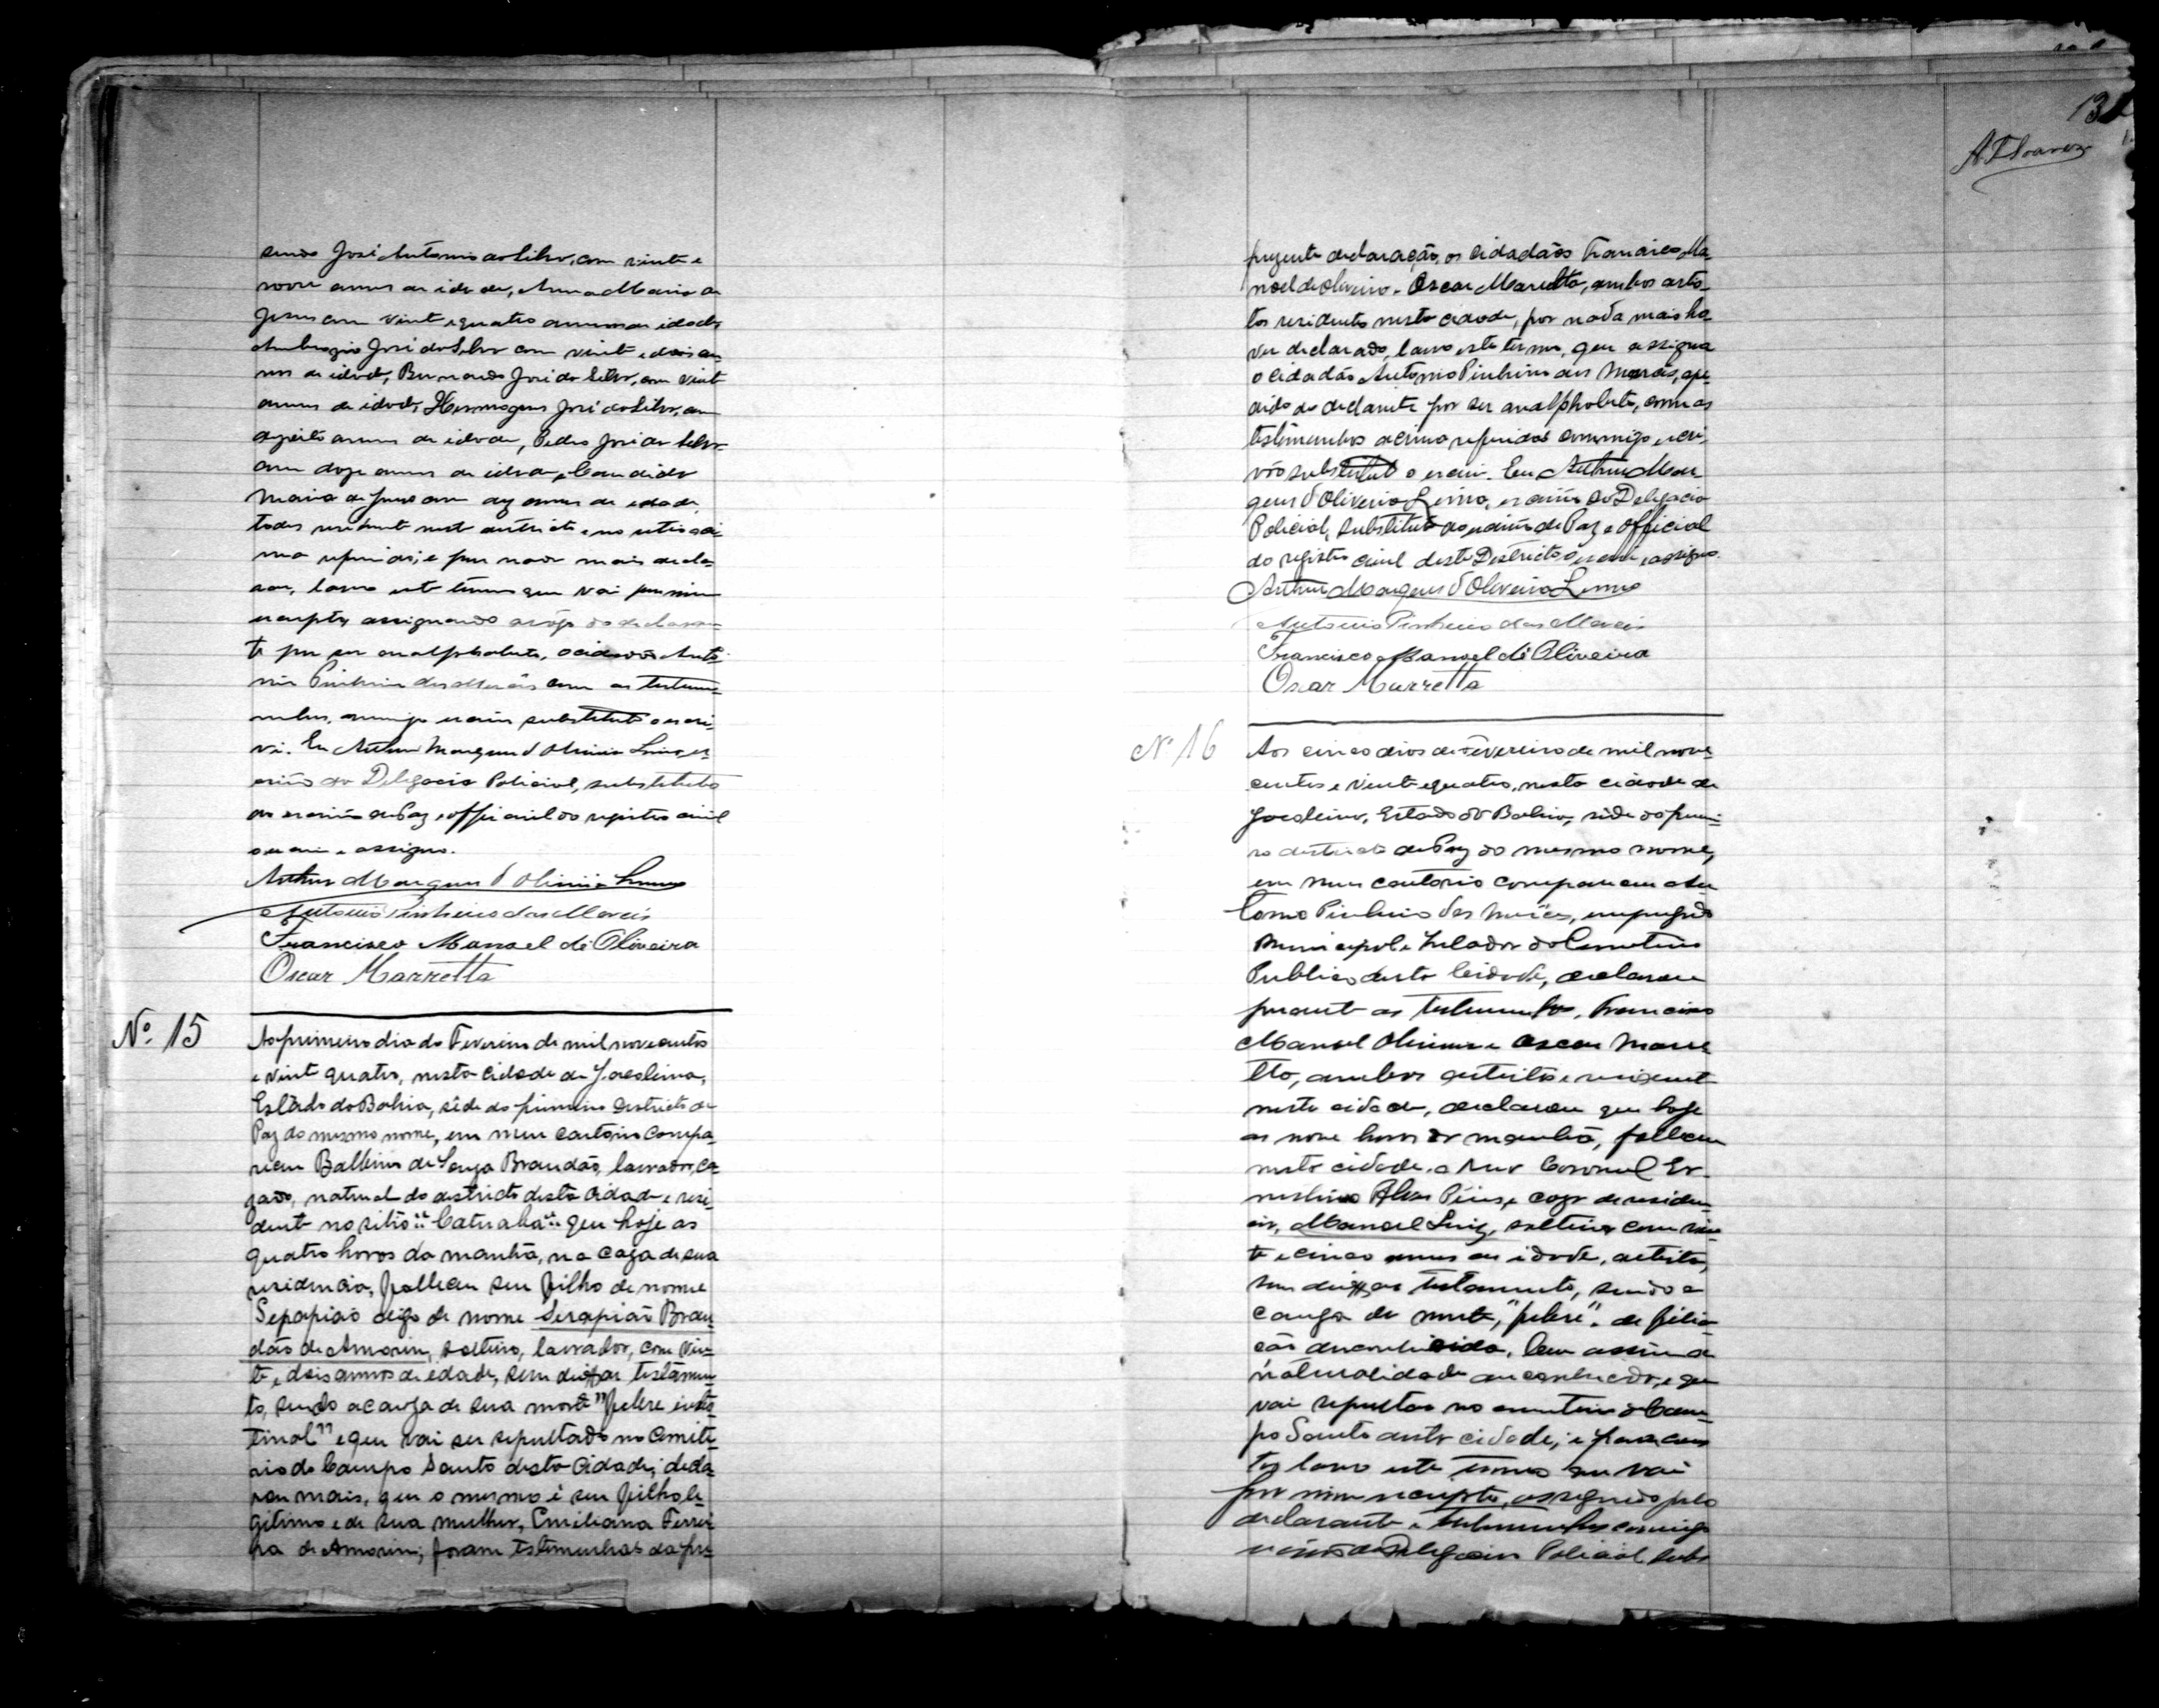 sendo José Antonio da Silva, com vinte e
nove annos de idade, Anna Maria de
Jesus com vinte e quatro annos de idade
Ambrozio José da Silva com vinte e dois an-
nos de idade, Bernardo José da Silva, com vinte
annos de idade, Hermogens José da Silva, com
dezoito annos de idade, Pedro José da Silva
com doze annos de idade, Candida
Maria de Jesus com dez annos de edade,
todos residente neste districto e no sitio aci-
ma referido; e por nada mais decla-
rar, lavro este termo que vai por mim
escripto, assignando a rogo do declaran-
te por ser analphabeto, o cidadão Anto-
nio Pinheiro das Mercês com as testemu-
nhas, commigo escrivão substituto o escre-
vi. Eu Arthur Marques d'Oliveira Lemos, es-
crivão da Delegacia Policial, substituto
do escrivão de Paz e official do registro civil
o escrevi e assigno.
Arthur Marques d'Oliveira Lemos
Antonio Pinheiro das Mercês
Francisco Manoel de Oliveira
Oscar Marretta
Nº 15
Ao primeiro dia de Fevereiro de mil novecentos
e vinte quatro, nesta cidade de Jacobina,
Estado da Bahia, séde do primeiro districto de
Paz do mesmo nome, em meu cartorio compa-
receu Balbino de Souza Brandão, lavrador, ca-
zado, natural do districto desta cidade e resi-
dente no sitio "Catuaba" que hoje as
quatro horas da manhã, na caza de sua
residencia, falleceu seu filho de nome
Sepapião digo de nome Serapião Bran-
dão de Amorim, solteiro, lavrador, com vin-
te e dois annos de edade, sem deixar testamen-
to, sendo a cauza de sua morte "febre intes-
tinal" e que vai ser sepultado no cemite-
rio do Campo Santo desta cidade; decla-
rou mais, que o mesmo é seu filho le-
gitimo e de sua mulher, Emiliana Ferrei-
ra de Amorim; foram testemunhas da pre-
13
prezente declaração, os cidadãos Francisco Ma-
noel de Oliveira e Oscar Marretta, ambos artis-
tas residentes nesta cidade, por nada mais ha-
ver declarado, lavro este termo, que assigna
o cidadão Antonio Pinheiro das Mercês, a pe-
dido do declarante por ser analphabeto, com as
testemunhas acima referidas commigo, escri-
vão substituto o escrevi. Eu Arthur Mar-
ques d'Oliveira Lemos, escrivão da Delegacia
Policial, substituto do escrivão de Paz e official
do registro civil deste Districto o escrevi e assigno.
Arthur Marques d'Oliveira Lemos
Antonio Pinheiro das Mercês
Francisco Manoel de Oliveira
Oscar Marretta
Nº 16
Aos cinco dias de Fevereiro de mil nove-
centos e vinte e quatro, nesta cidade de
Jacobina, Estado da Bahia, séde do primei-
ro districto de Paz do mesmo nome,
em meu cartorio compareceu An-
tonio Pinheiro das Mercês, empregado
Municipal e zelador do Cemiterio
Publico desta Cidade, declarou
perante as testemunhas, Francisco
Manoel Oliveira e Oscar Marre-
tta, ambos artistas e residente
nesta cidade, declarou que hoje
as nove horas da manhã, falleceu
nesta cidade, a rua Coronel Er-
nestino Alves Pires, e caza de residen-
cia, Manoel Luiz, solteiro com vin-
te e cinco annos de idade, artista,
sem deixar testamento, sendo a
cauza da morte, "febre". de filia-
ção desconhecida, bem assim a
naturalidade desconhecida, e que
vai sepultar no cemiterio do Cam-
po Santo desta cidade; e para cons-
tar lavro este termo que vai
por mim escripto, assignado pelo
declarante e testemunhas commigo
escrivão da Delegacia Policial subs